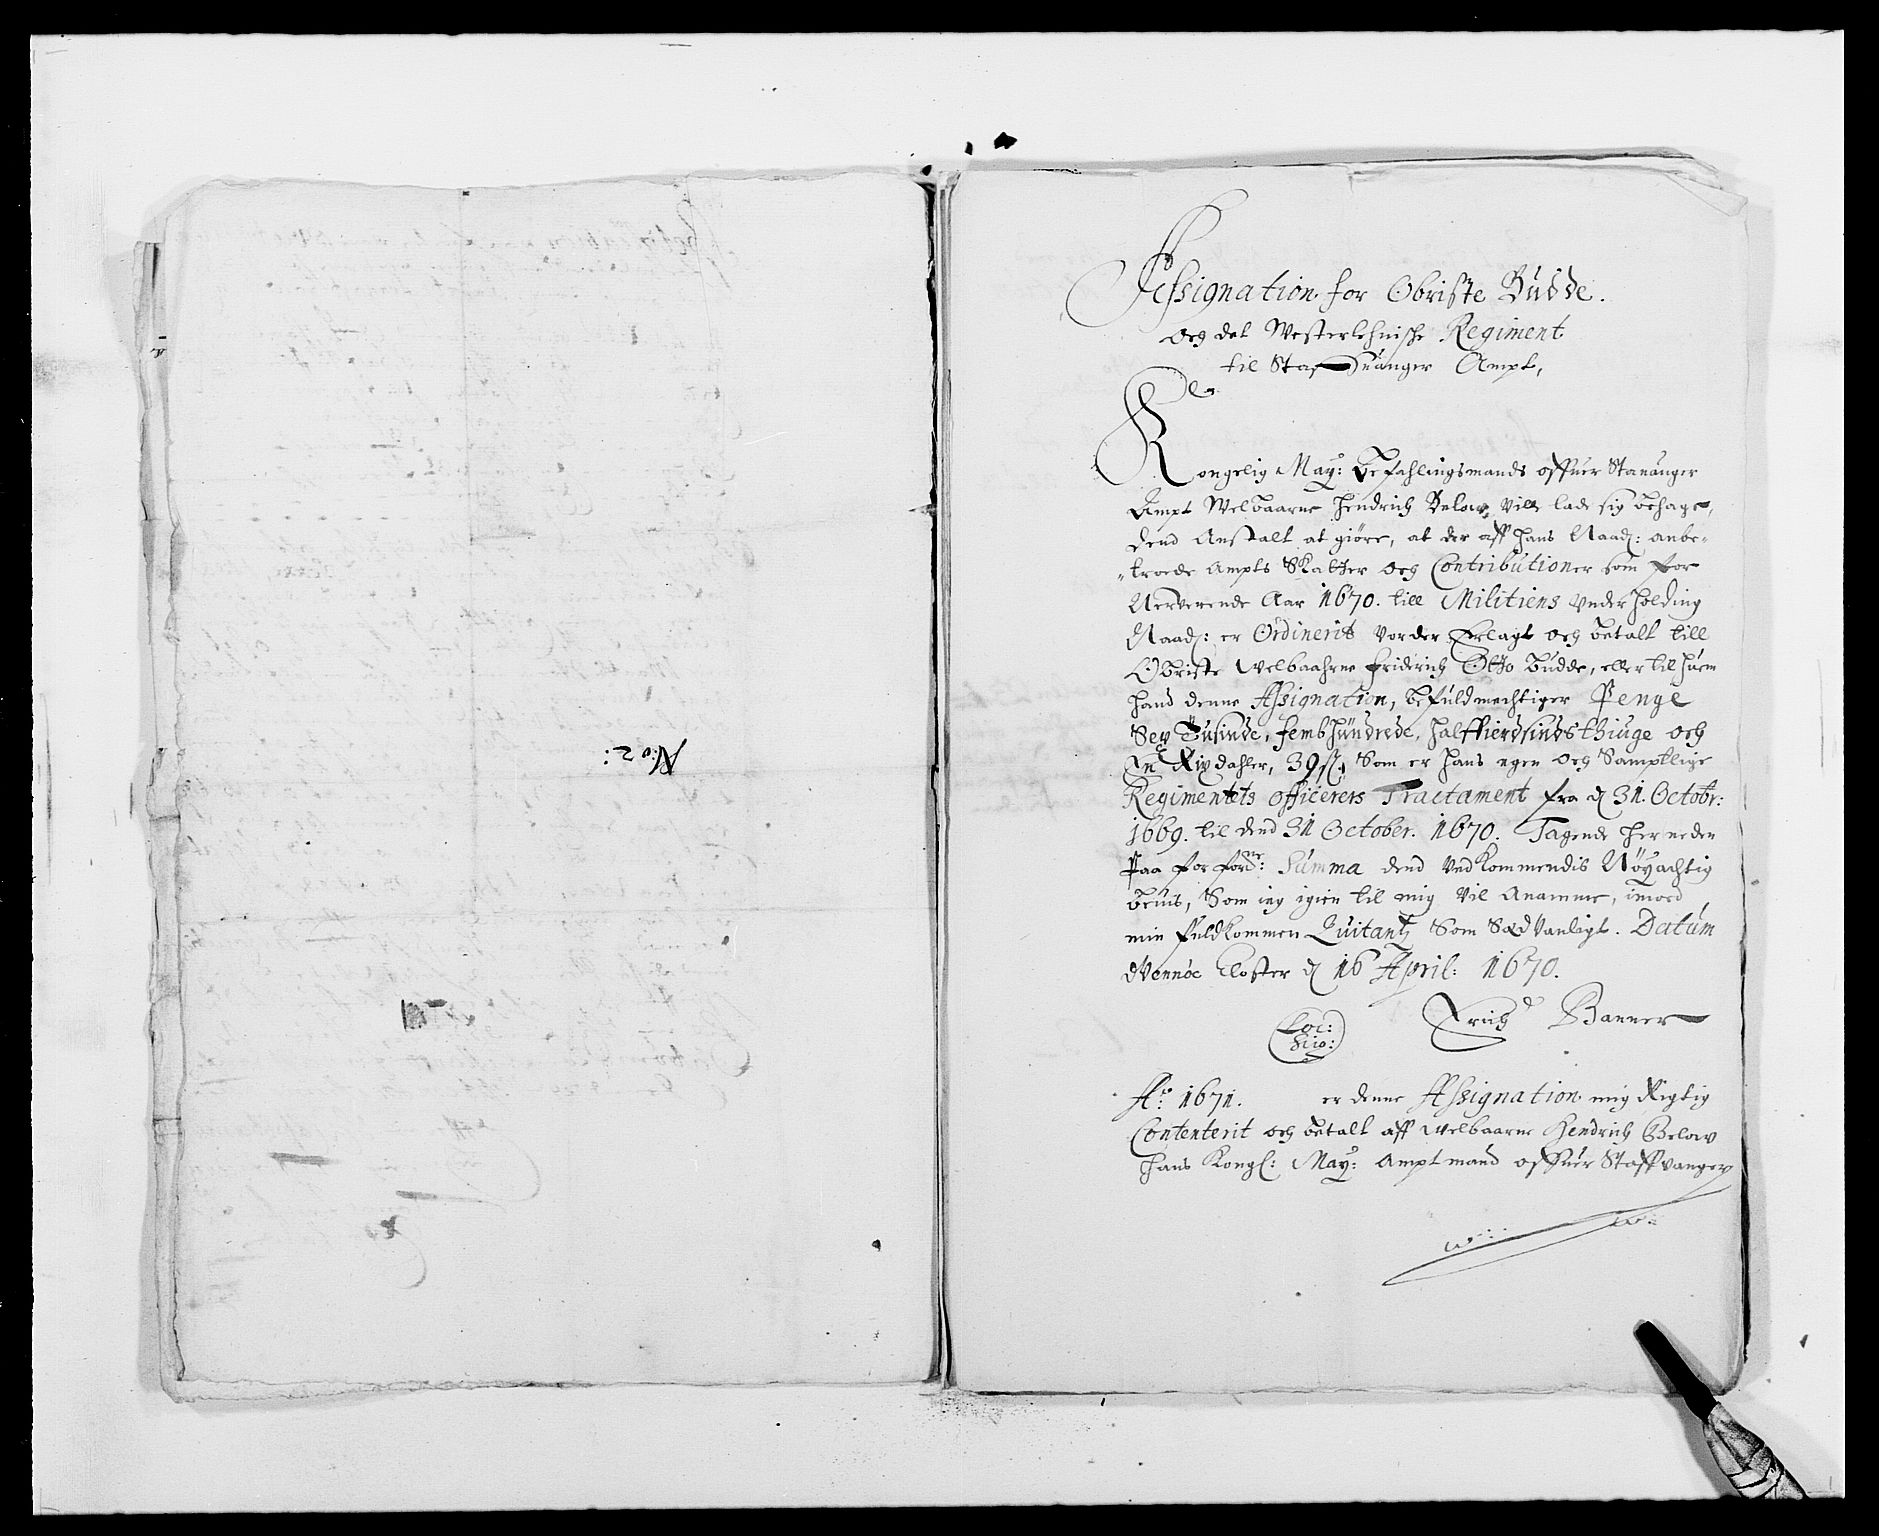 No 2:
Assignation for Obriste Budde.
och det Westerlehnische Regiment
til Staffuanger Ampt,
Kongelig May: Befahlingsmands offuer Stauanger
Ampt Welbaarne Hendrich Below, Ville lade sig behage,
dend Anstalt at giøre, at der aff hans Naad: anbe-
troede Ampts Skatter och Contributioner som for
Nerverende Aar 1670. till Militiens Vnderholding
Naad: er Ordinerit Vorder Erlagt och betalt till
Obriste Welbaahrne Friderich Otto Budde, eller til huem
hand denne Assignation, befuldmechtiger Penge
Sex Tusinde, fembhundrede, halffierdsindsthiuge och
En Rixdahler, 39 s, Som er hans egen och Samptlige
Regimentets officerers Tractament fra d 31. Octobr:
1669. til dend 31 October. 1670. Tagende her neden
Paa for forne: Summa dend Vedkommendis Nøyachtig
beuis, Som ieg igien til mig Vil Anamme, imod
min fuldkommen Quitantz Som Sædvanligt. Datum
Closter d 16 April: 1670.
Erich Banner
Loc:
Sigi:
Ao: 1671. er denne Assignation mig Rigtig
Contenterit och betalt aff Welbaarne Hendrich Below
hans Kongl: May: Amptmand offuer Staffvanger